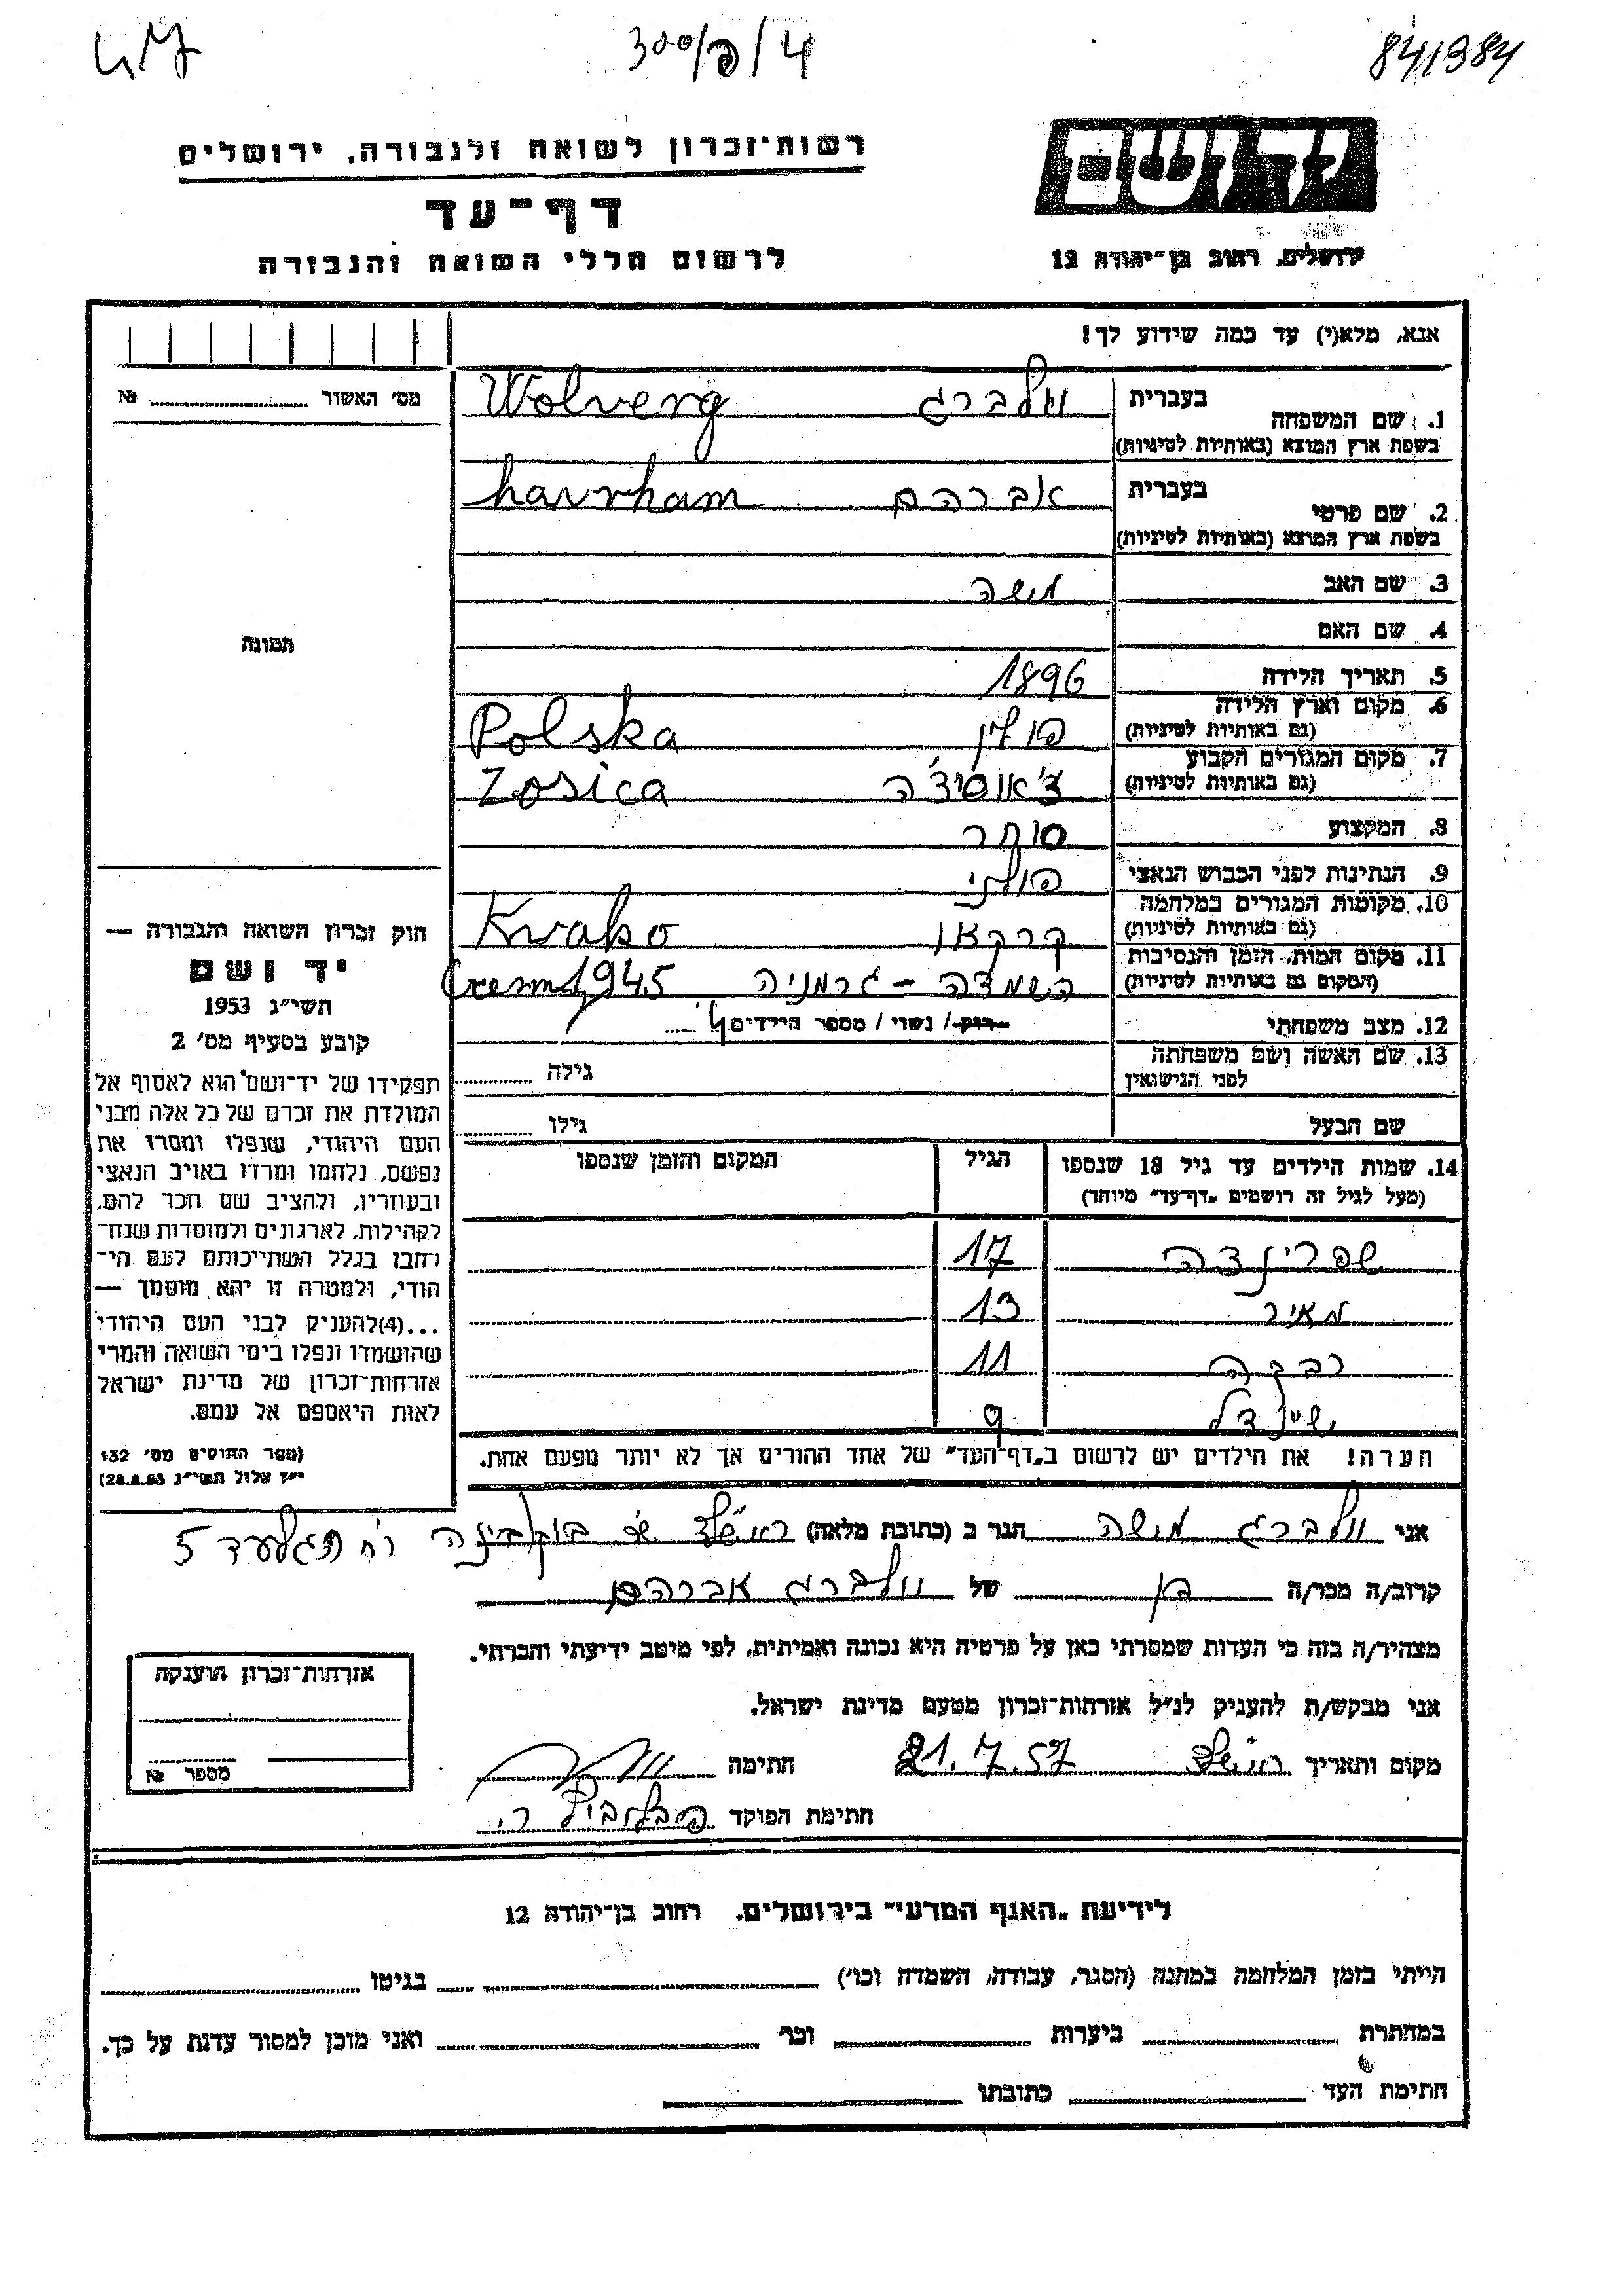 300/פ/4
84/384
רשות־זכרון לשואה ולגבורה, ירושלים
דף־עד
לרשום חללי השואה והגבורה
יד ושם
ירושלים, רחוב בן־יהודה 12
אנא, מלא(י) עד כמה שידוע לך!
מס' האשור № 
1. שם המשפחה בעברית וולברג Wolverg
בשפת ארץ המוצא (באותיות לטיניות)
2. שם פרטי בעברית אברהם havrham
בשפת ארץ המוצא (באותיות לטיניות)
3. שם האב משה
4. שם האם
תמונה
5. תאריך הלידה 1896
6. מקום וארץ הלידה פולין Polska
(גם באותיות לטיניות)
7. מקום המגורים הקבוע צ'אוסיצ'ה Zosica
(גם באותיות לטיניות)
8. המקצוע סוחר
9. הנתינות לפני הכבוש הנאצי פולני
10. מקומות המגורים במלחמה קרקאו Krako
(גם באותיות לטיניות)
11. מקום המות, הזמן והנסיבות השמדה – גרמניה 1945
(המקום גם באותיות לטיניות)
12. מצב משפחתי רווק / נשוי / מספר הילדים 4
13. שם האשה ושם משפחתה גילה
לפני הנישואין
שם הבעל גילו
14. שמות הילדים עד גיל 18 שנספו הגיל המקום והזמן שנספו
(מעל לגיל זה רושמים „דף־עד" מיוחד)
שפרינצה 17
מאיר 13
רבקה 11
שיינדל 9
הערה! את הילדים יש לרשום ב„דף־העד" של אחד ההורים אך לא יותר מפעם אחת.
חוק זכרון השואה והגבורה —
יד ושם
תשי"ג 1953
קובע בסעיף מס' 2
תפקידו של יד־ושם הוא לאסוף אל
המולדת את זכרם של כל אלה מבני
העם היהודי, שנפלו ומסרו את
נפשם, נלחמו ומרדו באויב הנאצי
ובעוזריו, ולהציב שם וזכר להם,
לקהילות, לארגונים ולמוסדות שנח־
רחבו בגלל השתייכותם לעם הי־
הודי, ולמטרה זו יהא מוסמך —
...(4) להעניק לבני העם היהודי
שהושמדו ונפלו בימי השואה והמרי
אזרחות־זכרון של מדינת ישראל
לאות היאספם אל עמם.
(ספר החוקים מס' 132
י"ז אלול תשי"ג 28.8.53)
אני וולברג משה הגר ב (כתובת מלאה) ראשל"צ רח' הגלעד 5
קרוב/ה מכר/ה בן של וולברג אברהם
מצהיר/ה בזה כי העדות שמסרתי כאן על פרטיה היא נכונה ואמיתית, לפי מיטב ידיעתי והכרתי.
אני מבקש/ת להעניק לנ"ל אזרחות־זכרון מטעם מדינת ישראל.
מקום ותאריך ראשל"צ 21.7.57 חתימה
חתימת הפוקד
אזרחות־זכרון הוענקה
מספר №
לידיעת „האגף המדעי" בירושלים, רחוב בן־יהודה 12
הייתי בזמן המלחמה במחנה (הסגר, עבודה, השמדה וכו') בגיטו
במחתרת ביערות וכו' ואני מוכן למסור עדות על כך.
חתימת העד כתובתו